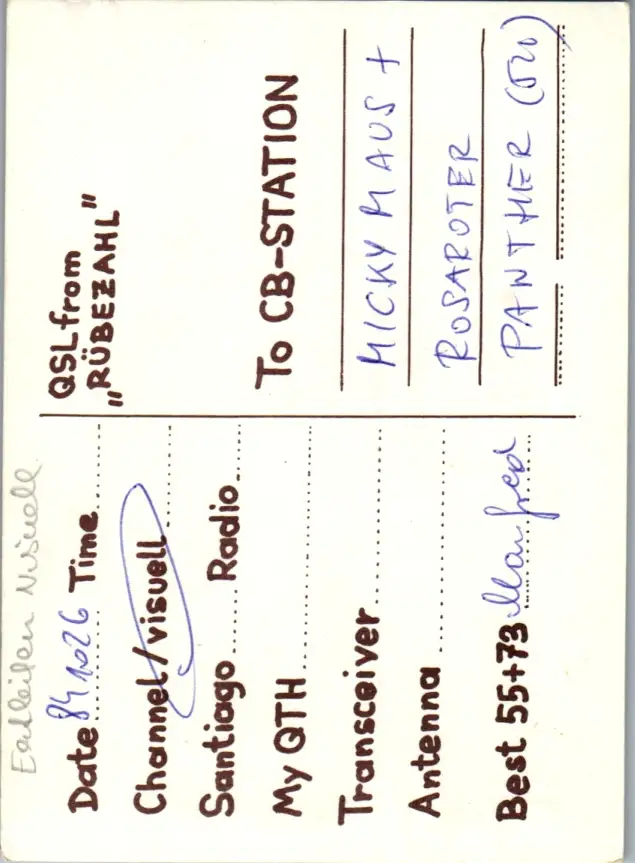 Erhalten Visuell
Date 841026 Time
Channel/visuell
Santiago Radio
My QTH
Transceiver
Antenna
Best 55+73 Manfred
QSL from
„RÜBEZAHL"
To CB-STATION
MICKY MAUS +
ROSAROTER
PANTHER